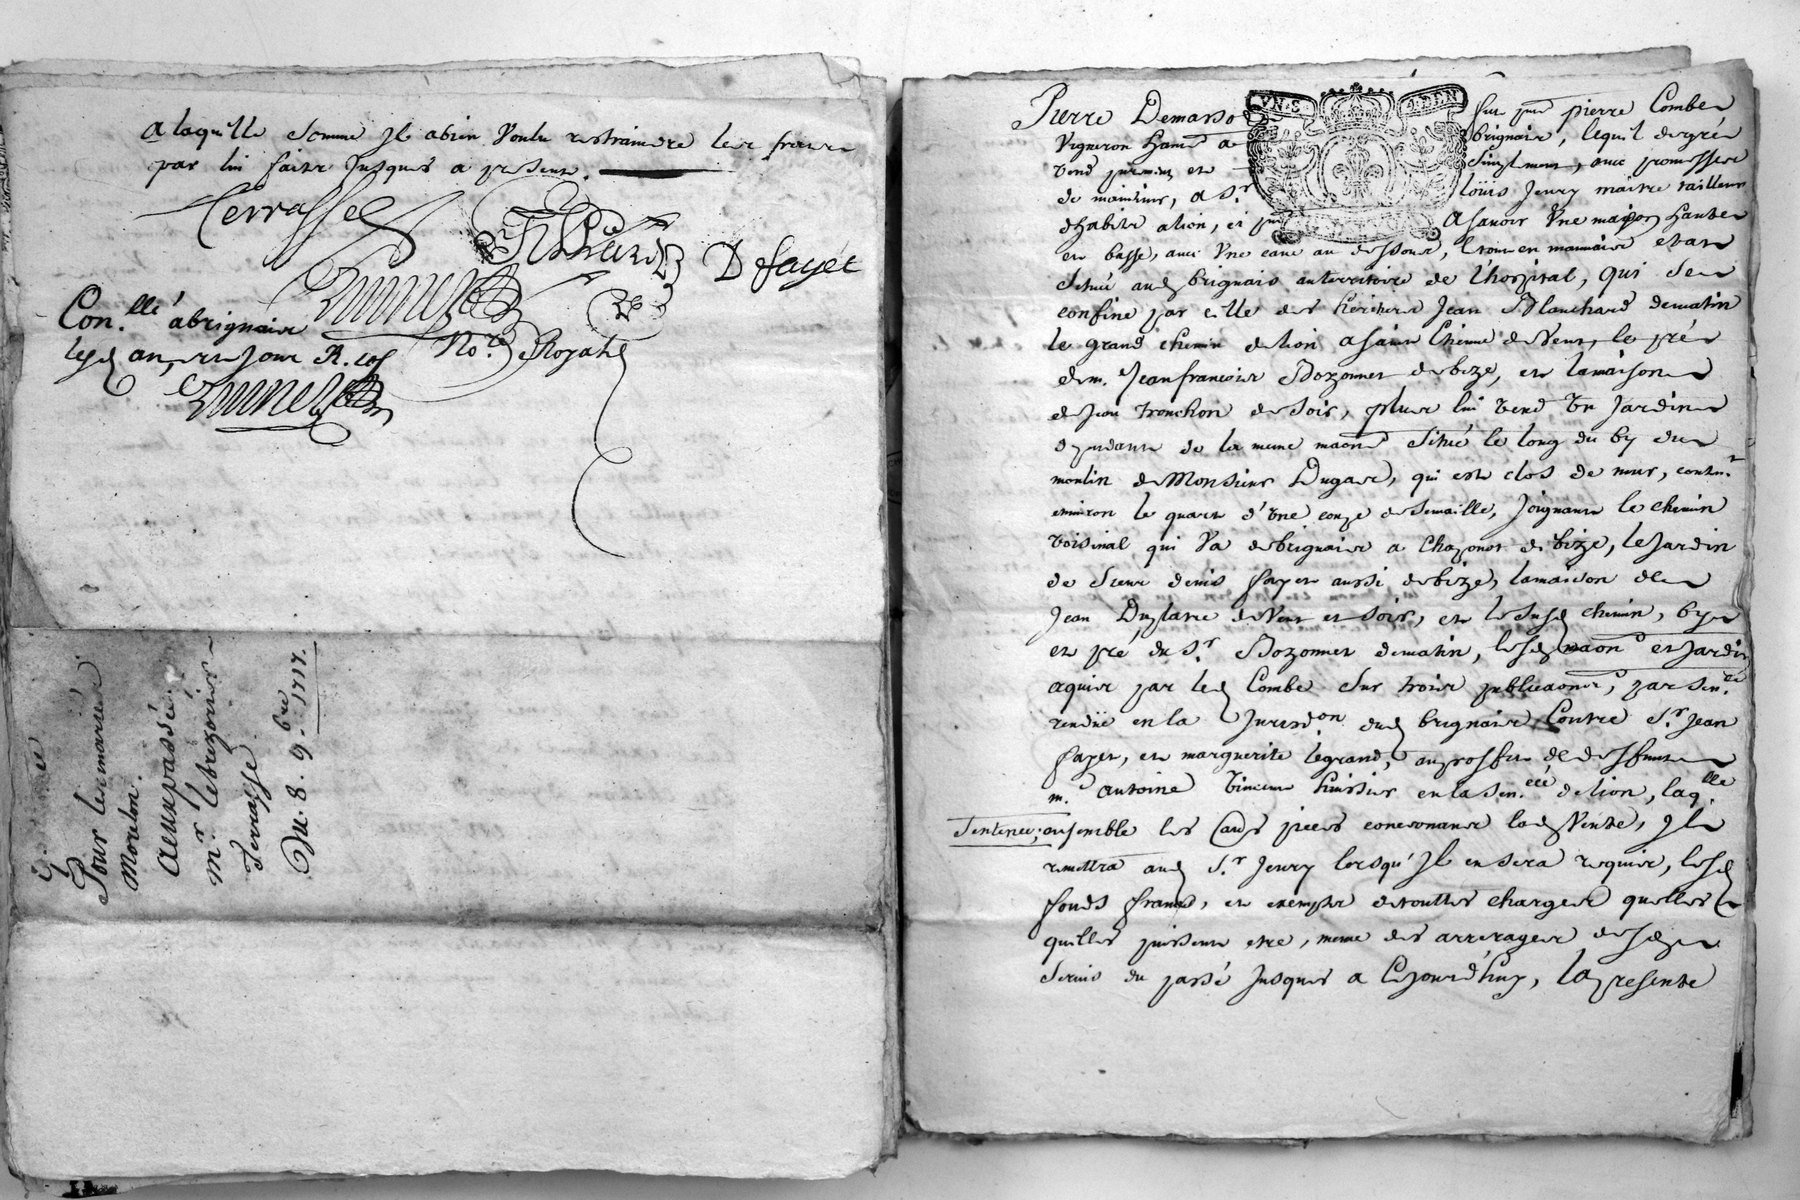 a laquelle somme Il abien Voulu restraindre les frais
par lui faits Jusques a present.
Terrasse
Defayet
Con.llé abrignais
lesd an, et Jour R. cof
No.re Royal
Pour les mariés
Morulon.
Mr. letrezorier
Terrasse
Du. 8. 9.bre 1717.
VN.S DEN
Pierre Demasso
fut pnt pierre Combe
Vigneron hant a
brignais, lequel de gré
vend purement et
simplement, avec promesse
de maintenir, a Sr.
louis Jeury maitre tailleur
dhabits alion, ici pnt
Asavoir Vne maison haute
et basse, avec Vne cave au dessous,
Situé aud brignais auterritoire de Lhospital, qui se
confine par celle des heritiers Jean Blanchard dematin
le grand chemin delion asaint Etienne deVent, le pré
dem. Jeanfrancois Bozonnet debize, et lamaison
de Jean tronchon de soir, plus lui vend Vn Jardin
dependant de la meme maon Situé le long du by du
moulin deMonsieur Dugas, qui est clos de murs, conten.t
environ le quart d'Vne coupe de semaille, Joignant le chemin
voisinal qui Va debrignais a Chaponost de bize, leJardin
de Sieur denis fayet aussi debize, lamaison de
Jean Duplatre deVent et soir, et le susd chemin, by
et pré du Sr. Bozonnet dematin, lesd maon et Jardin
aquis par led Combe Sur trois publicaons, par sen.ce
rendüe en la Jurisdon dud brignais Contre Sr. Jean
fayet, et marguerite legrand, auproffit de deffunt
m.e antoine Vincent huissier en la sen.ccée de lion, laq.lle
Sentence, ensemble les aus pieces concernant lad Vente, Il
remettra aud Sr. Jeury lorsqu'Il en sera requis, lesd
fonds francs, et exempts detoutes charges quelles
quelles puissent etre, meme des arrerages desd
servis du passé Jusques a Cejourd'huy, la presente